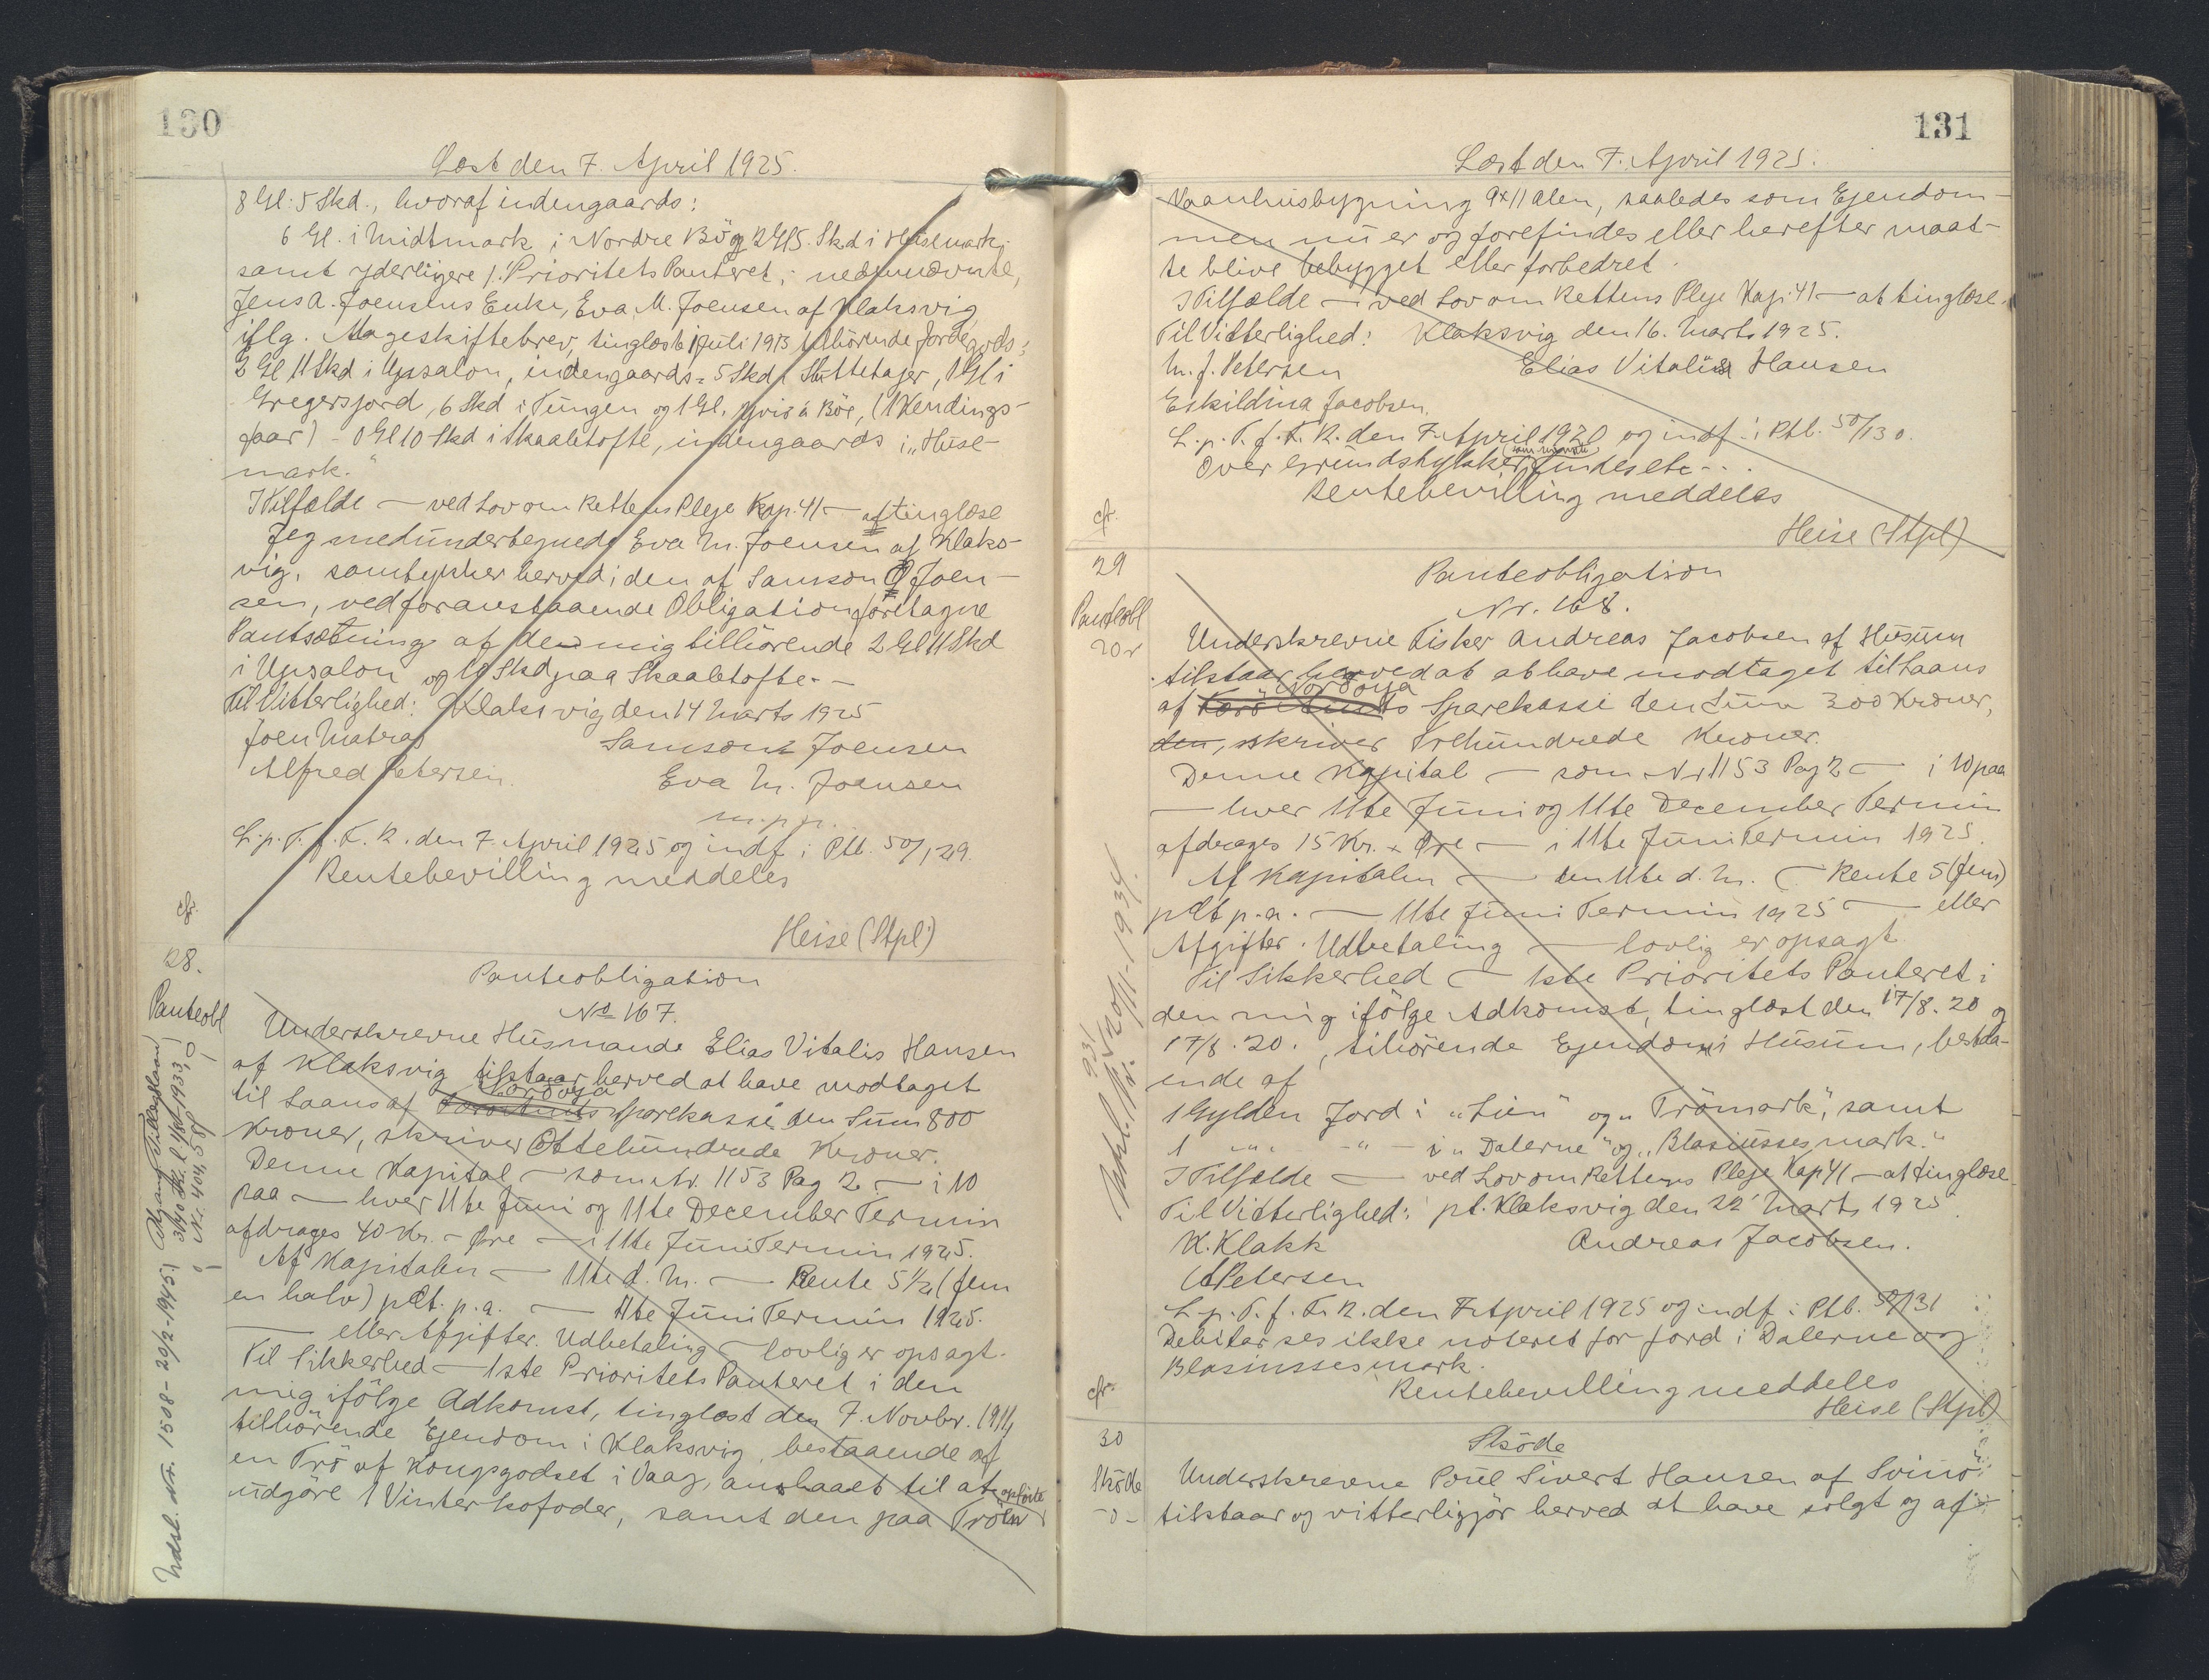 130
Læst den 7. April 1925.
8 Gl. 5 Skd., hvoraf indengaards:
6 Gl. i Midtmark i Nordre Bö og 2 Gl 5. Skd i Husemark;
samt yderligere 1.' Prioritets Panteret, i nedennævnte,
Jens A. Joensens Enke, Eva M. Joensen af Klaksvig
iflg. Mageskiftebrev, tinglæst 1 Juli 1913 tilhörende Jordegods:
2 Gl 11 Skd i Upsalon, indengaards = 5 Skd i Stittetajer, 1 Gl i
Gregersjord, 6 Skd i Tungen og 1 Gl. Böe, (1 Kendings-
faar) - 0 Gl 10 Skd i Skaaletofte, indengaards i „Huse-
mark."
I Tilfælde — ved Lov om Rettens Pleje Kap. 41 — at tinglæse
Jeg medunderbegnede Eva M. Joensen af Klaks-
vig, samtykker herved i den af Samson J Joen-
sen, ved foranstaaende Obligation foretagne
Pantsætning af den mig tilhörende 2 Gl 11 Skd
i Upsalon og 10 Skd paa Skaaletofte. —
Til Vitterlighed: Klaksvig den 14 Marts 1925
Joen Matras Samson Joensen
Alfred Petersen. Eva M. Joensen
m.p.p.
L. p. T. f. F. R. den 7. April 1925 og indf. i Ptb. 50/129.
Rentebevilling meddeles
Heise (Stpl.)
cfr.
28.
Panteobl
Panteobligation
No 167.
Underskrevne Husmand Elias Vitalis Hansen
af Klaksvig tilstaar herved at have modtaget
Nordoya
til Laans af Færö Amts Sparekasse den Sum 800
Kroner, skriver Ottehundrede Kroner.
Denne Kapital — som Nr. 1153 Pag 2 — i 10
paa — hver 11te Juni og 11te December Termin
afdrages 40 Kr. - Øre — i 11te Juni Termin 1925.
Af Kapitalen — 11te d. M. — Rente 5 1/2 (fem
en halv) pCt. p. a. — 11te Juni Termin 1925.
— eller Afgifter. Udbetaling — lovlig er opsagt.
Til Sikkerhed — 1ste Prioritets Panteret i den
mig ifölge Adkomst, tinglæst den 7. Novbr. 1911,
tilhörende Ejendom i Klaksvig, bestaaende af
en Trö af Kongsgodset i Vaag, anslaaet til at
udgöre 1 Vinterkofoder, samt den paa Tröen opförte
Udsl. Nr. 1508 - 20/2-1945
131
Læst den 7. April 1925.
Vaanhusbygning 9x11 Alen, saaledes som Ejendom-
men nu er og forefindes eller herefter maat-
te blive bebygget eller forbedret.
I Tilfælde — ved Lov om Rettens Pleje Kap. 41 — at tinglæse.
Til Vitterlighed: Klaksvig den 16. Marts 1925.
M. J. Petersen Elias Vitalis Hansen
Eskildina Jacobsen.
L. p. T. f. F. R. den 7. April 1920 og indf. i Ptb. 50/130.
Over Grundstykket, findes etc...
Rentebevilling meddeles
Heise (Stpl)
cfr.
29
Panteobl
20r
Panteobligation
Nr. 168.
Underskrevne Fisker Andreas Jacobsen af Husum
tilstaar herved at at have modtaget til Laans
Nordoya
af Færö Amts Sparekasse den Sum 300 Kroner,
den, skriver Trehundrede Kroner.
Denne Kapital — som Nr 1153 Pag 2 — i 10 paa
— hver 11te Juni og 11te December Termin
afdrages 15 Kr. x Øre — i 11te Juni Termin 1925.
Af Kapitalen — den 11te d. M. — Rente 5 (fem)
pCt p. a. — 11te Juni Termin 1925 — eller
Afgifter. Udbetaling — lovlig er opsagt.
Til Sikkerhed — 1ste Prioritets Panteret i
den mig ifölge Adkomst, tinglæst den 17/8. 20 og
17/8. 20., tilhörende Ejendom i Husum, bestaa-
ende af
1 Gylden Jord i „Lien" og „Trömark", samt
1 „ „ - „ - i „Dalerne" og „Blasiussesmark."
I Tilfælde — ved Lov om Rettens Pleje Kap 41 — at tinglæse
Til Vitterlighed: pt. Klaksvig den 22' Marts 1925.
K. Klakk Andreas Jacobsen.
A Petersen
L. p. T. f. F. R. den 7. April 1925 og indf. i Ptb. 50/131
Debitor ses ikke noteret for Jord i Dalerne og
Blasiussesmark.
Rentebevilling meddeles
Heise (Stpl)
cfr.
30
Sköde
-0-
Sköde
Underskrevne Poul Sivert Hansen af Svinö
tilstaar og vitterliggjör herved at have solgt og af-